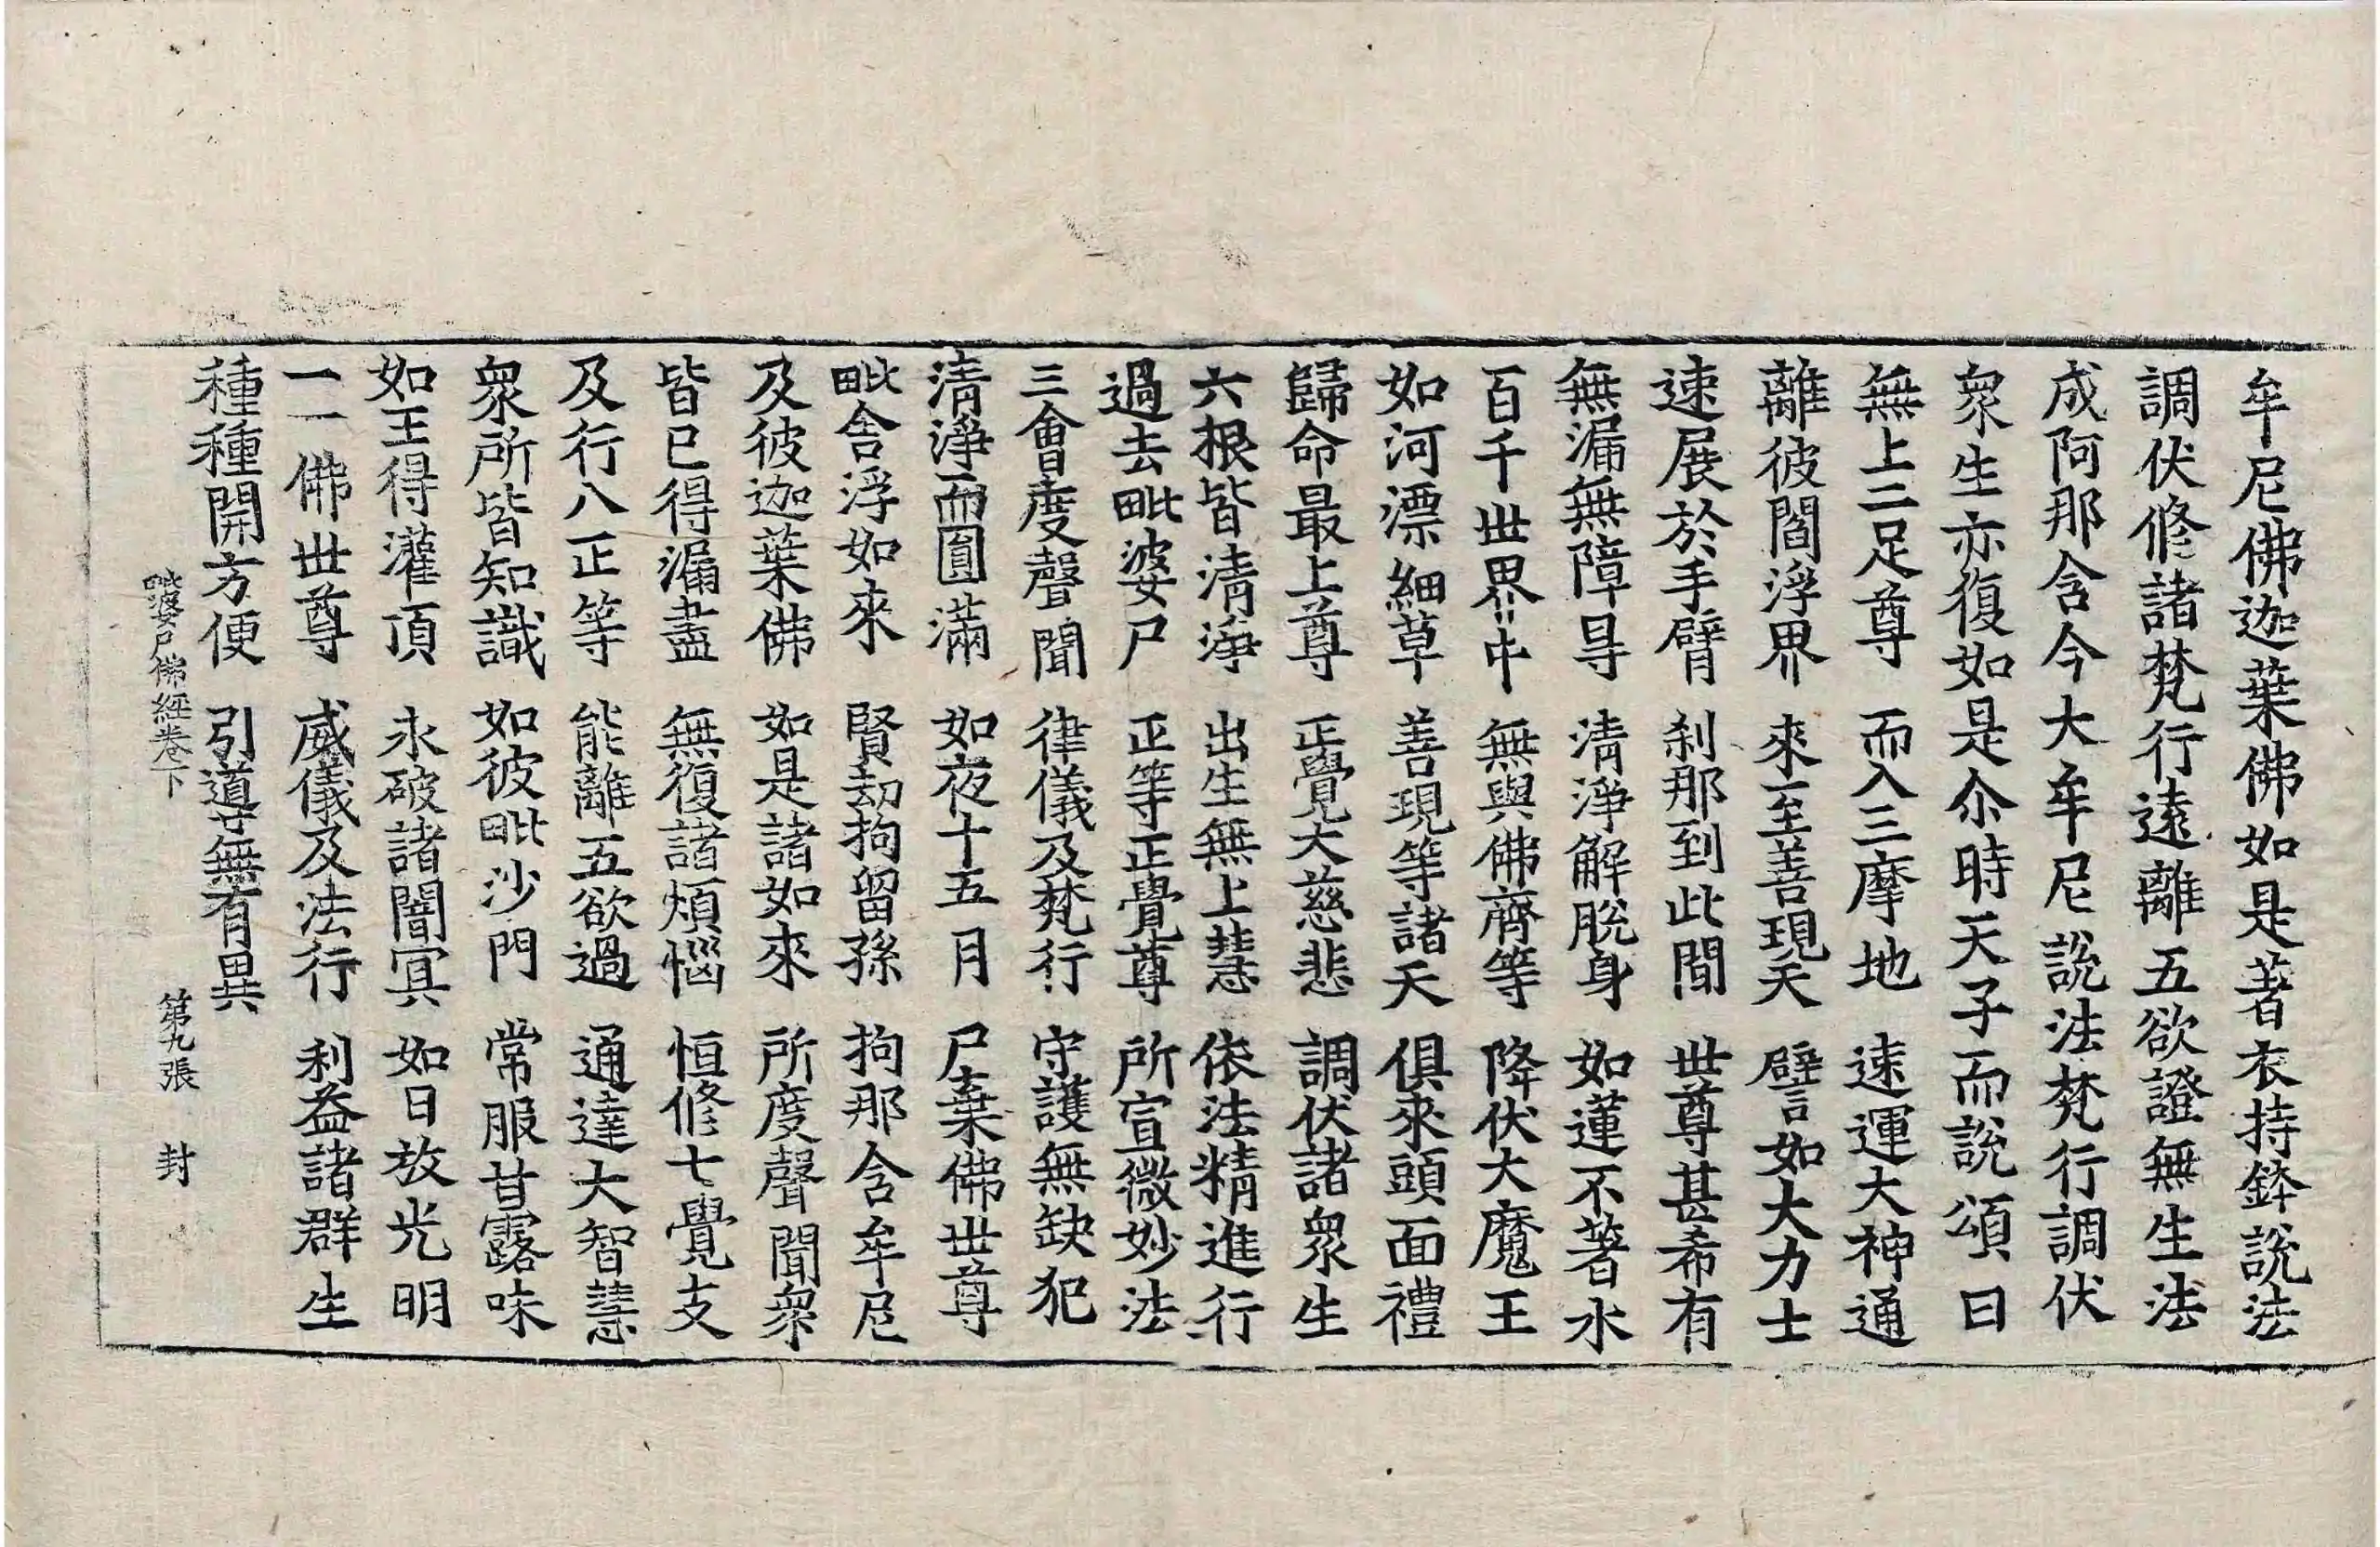 牟尼佛迦葉佛如是著衣持鉢說法
調伏修諸梵行遠離五欲證無生法
成阿那含今大牟尼說法梵行調伏
衆生亦復如是尒時天子而說頌曰
無上二足尊 而入三摩地 速運大神通
離彼閻浮界 來至善現天 譬如大力士
速展於手臂 刹那到此間 世尊甚希有
無漏無障㝵 清淨解脫身 如蓮不著水
百千世界中 無與佛齊等 降伏大魔王
如河漂細草 善現等諸天 俱來頭面禮
歸命最上尊 正覺大慈悲 調伏諸衆生
六根皆清淨 出生無上慧 依法精進行
過去毗婆尸 正等正覺尊 所宣微妙法
三會度聲聞 律儀及梵行 守護無缺犯
清淨而圓滿 如夜十五月 尸棄佛世尊
毗舍浮如來 賢劫拘留孫 拘那含牟尼
及彼迦葉佛 如是諸如來 所度聲聞衆
皆已得漏盡 無復諸煩惱 恒修七覺支
及行八正等 能離五欲過 通達大智慧
衆所皆知識 如彼毗沙門 常服甘露味
如王得灌頂 永破諸闇冥 如日放光明
一一佛世尊 威儀及法行 利益諸群生
種種開方便 引導無有異
毗婆尸佛經卷下 第九張 封